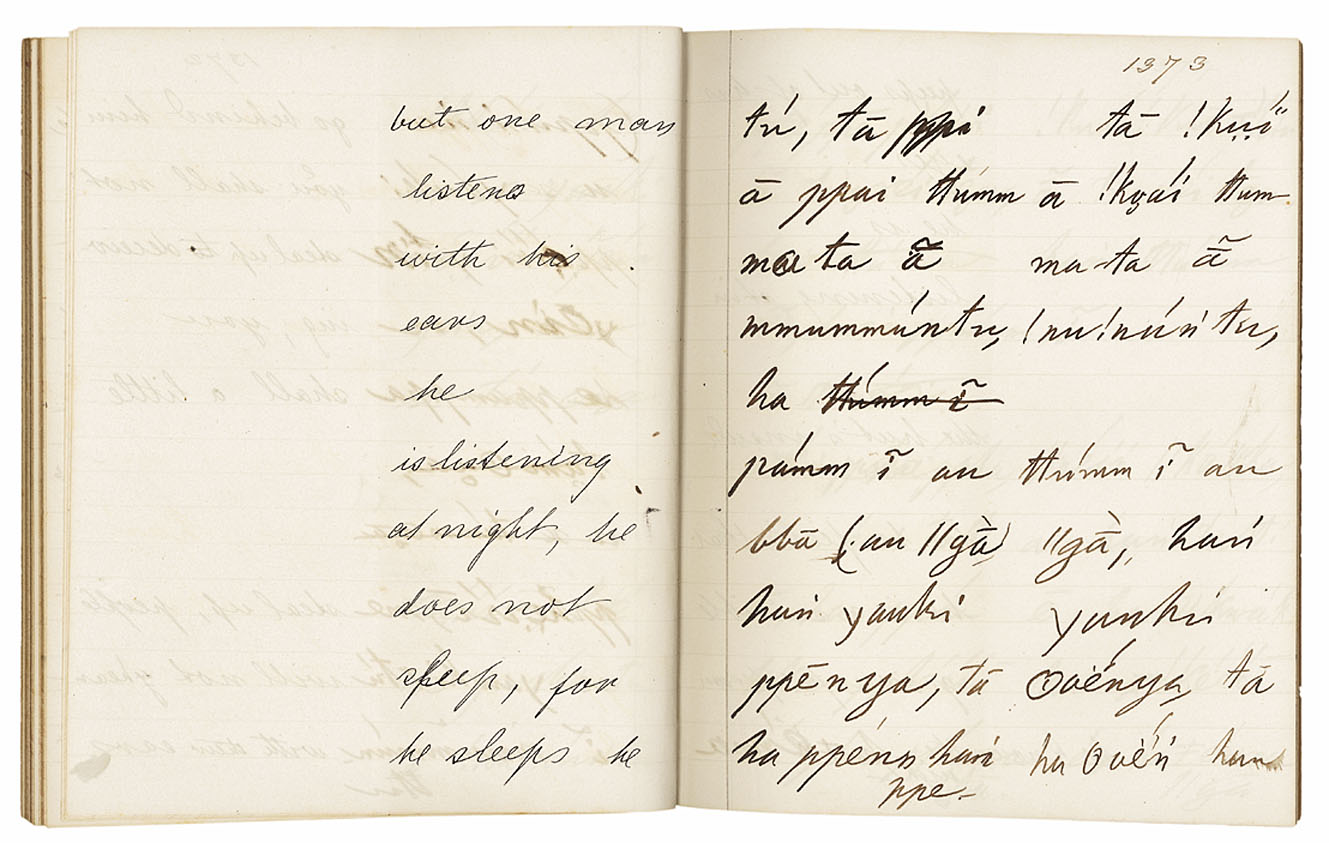 but one man
listens
with his
ears
he
is listening
at night, he
does not
sleep, for
he sleeps he
1373
tú, tā tā !kụï
ā ppai ttumm ā !kọaí ttum
mata ã ma-ta ã
mmummúntu, !nu!núntu,
ha ttúmm ĩ
pámm ĩ au ttúmm ĩ au
bbā (au ǁgā̀) ǁgā̀, haṅ
haṅ yauki yauki
ppēnya, tā ʘoēnya, tā
ha ppén haṅ ha ʘoéṅ haṅ
ppe-